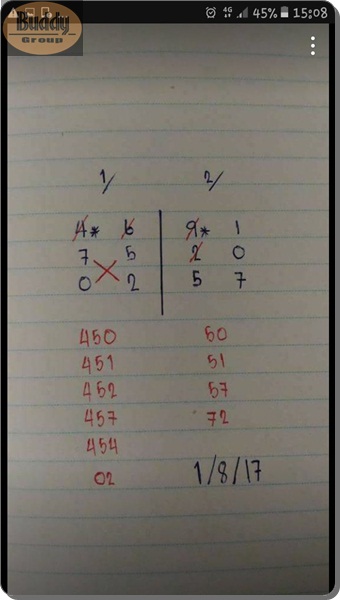 Buddy
Group
4G 45% 15:08
1/ 2/
4* 6 9* 1
7 5 2 0
0 2 5 7
450 50
451 51
452 57
457 72
454
02 1/8/17